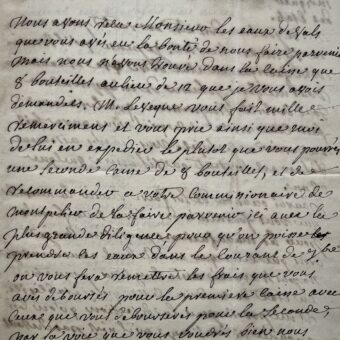 Nous avons recu Monsieur les eaux de vals
que vous avés eu la bonté de nous faire parvenir
mais nous n'avons trouvé dans la caisse que
8 bouteilles au lieu de 12 que je vous avois
demandés. M. vous fait mille
remerciment et vous prie ainsi que moi
de lui en expedier le plutot que vous pourrés
une seconde caisse de 8 bouteilles, et de
recommander a votre commissionaire de
montpelier de la faire parvenir ici avec la
plus grande diligence pour qu'on puisse
prendre les eaux dans le courant de 7bre
on vous fera remettre les frais que vous
avés déboursés pour la premiere caisse avec
ceux que vous débourserés pour la seconde,
par la voie que vous voudrés bien nous